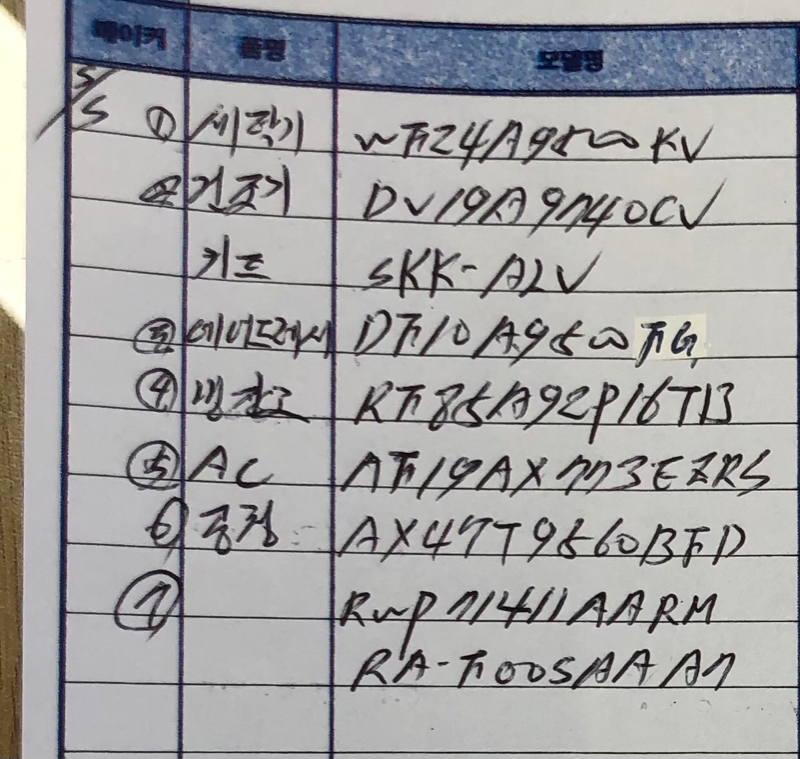 메이커 품명 모델명
S/S ① 세탁기 WF24A9500KV
② 건조기 DV19A9740CV
키트 SKK-ALV
③ 에어드레서 DF10A9500FG
④ 냉장고 RF85A92P16TB
⑤ AC AF19AX773EZRS
6 공청 AX47T9560BFD
⑦ RWP71411AARM
RA-F00SAAA7